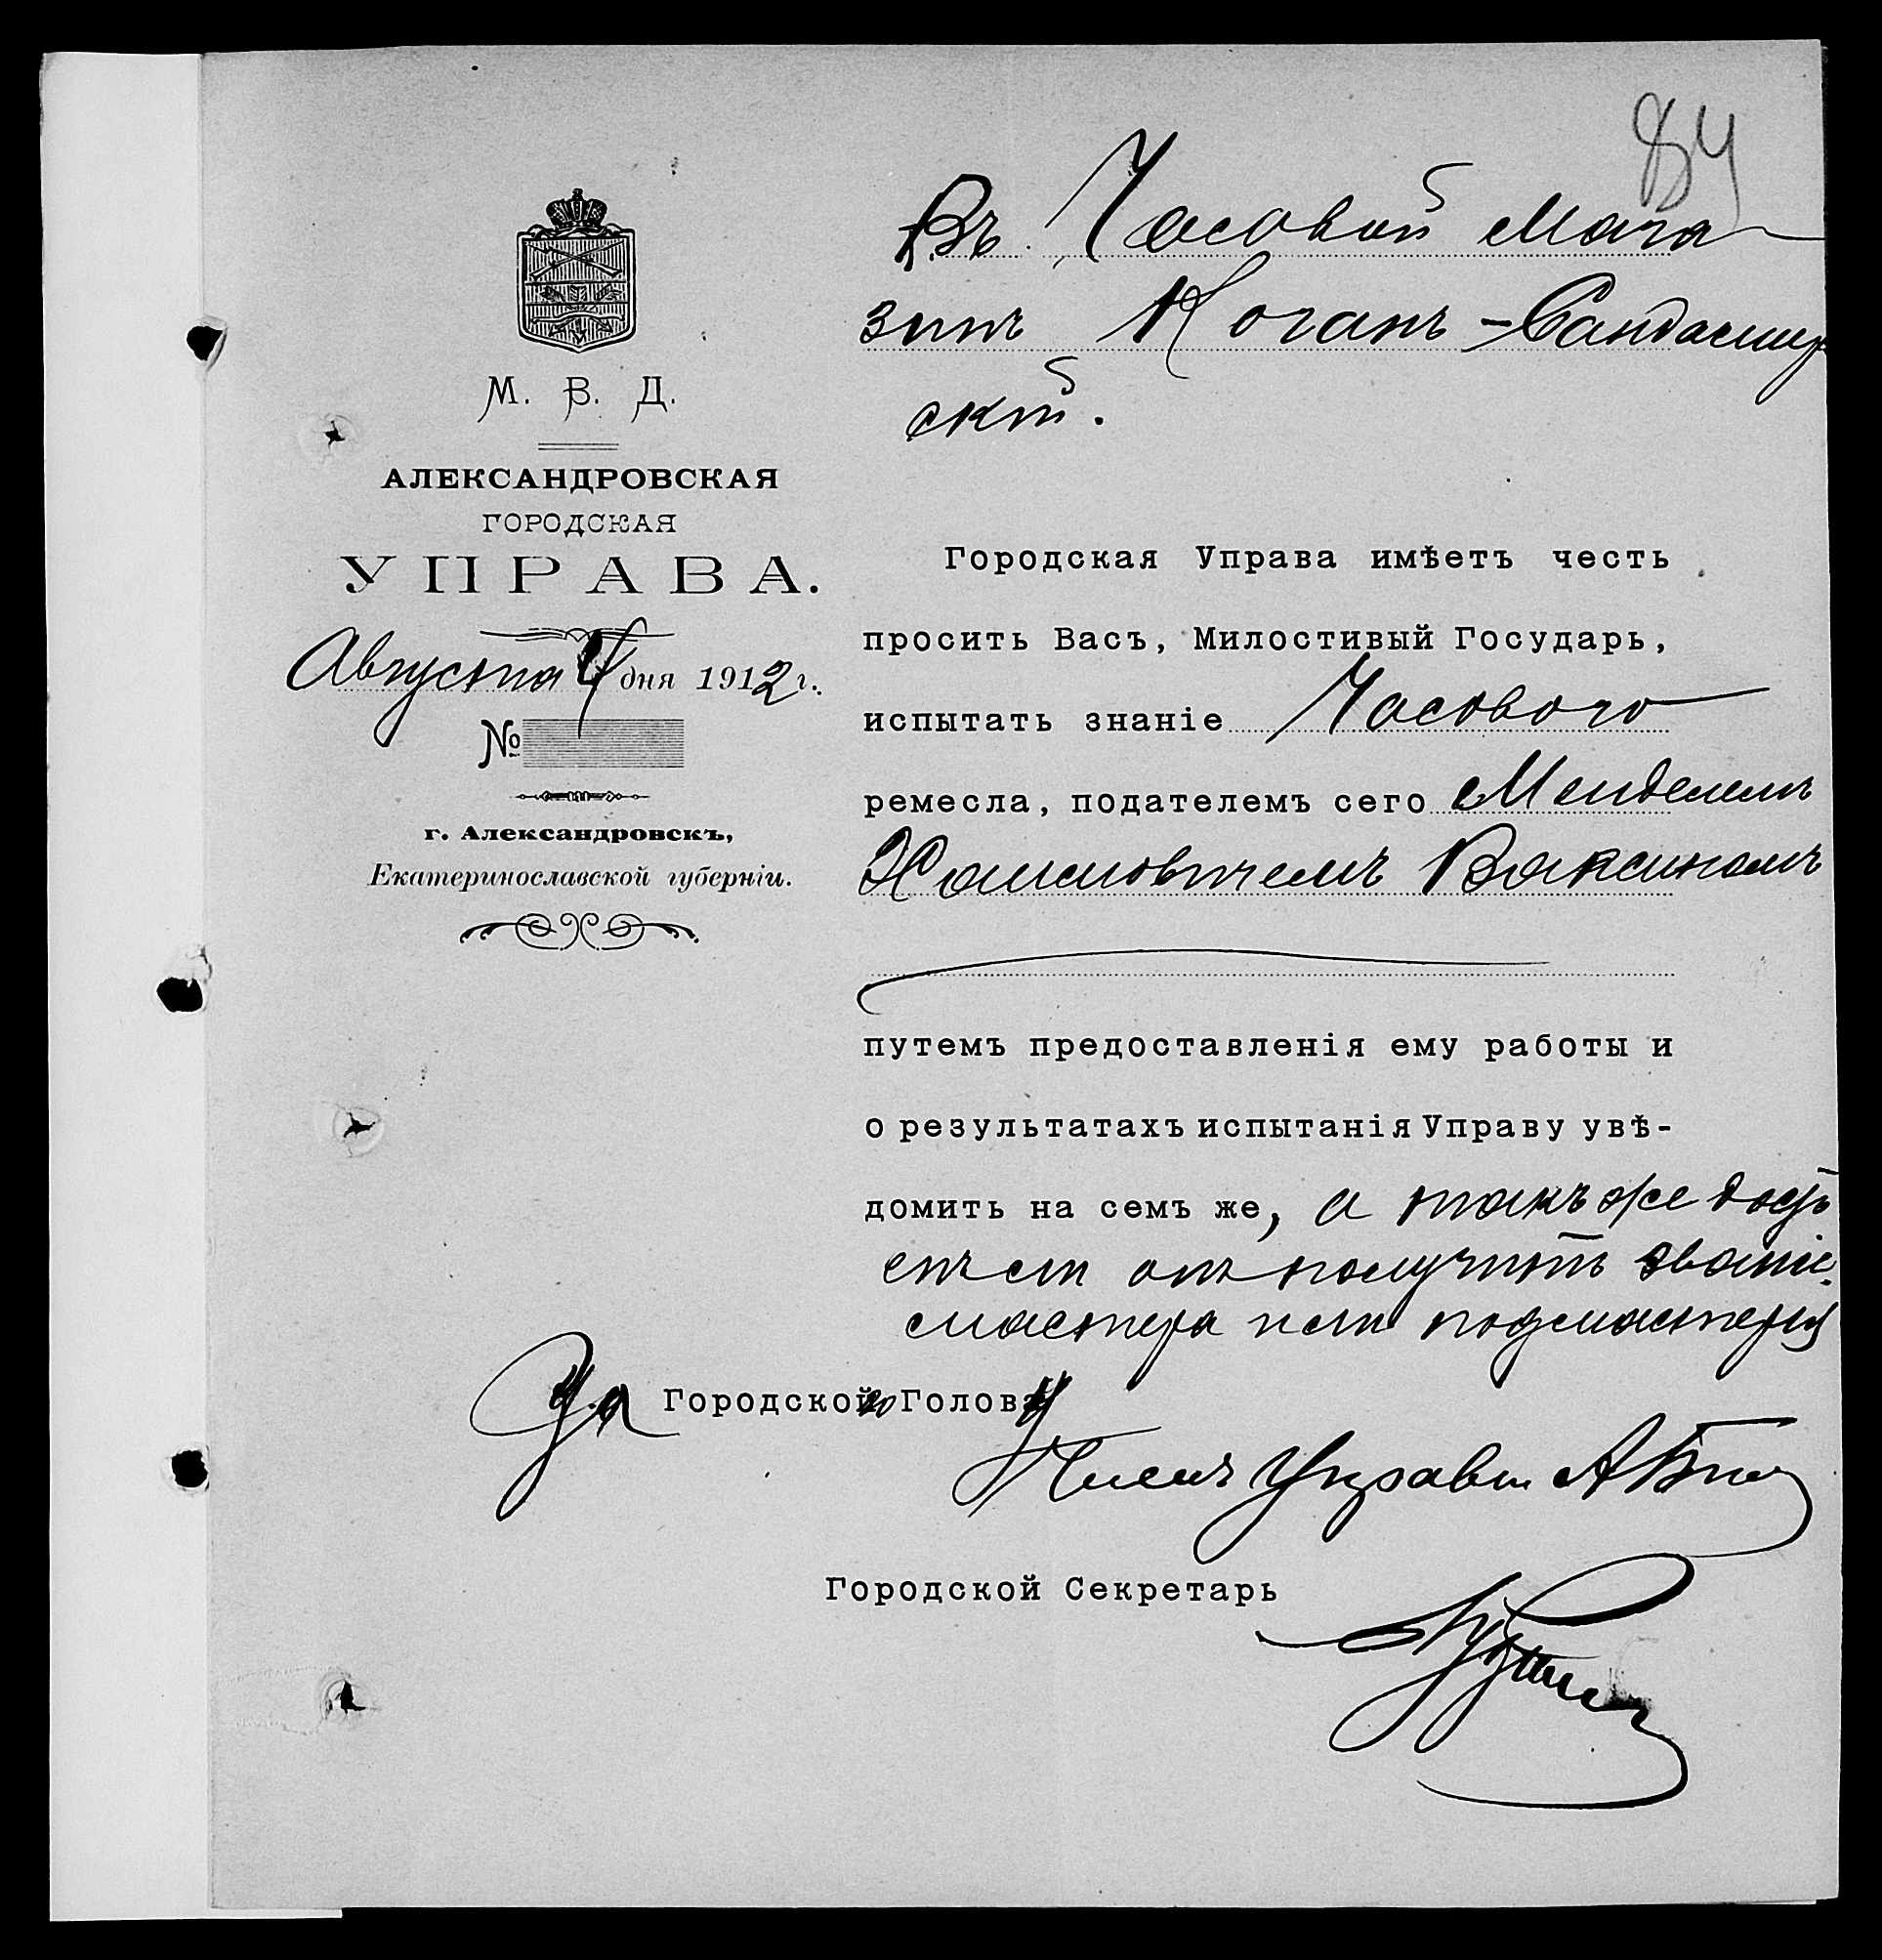 84
М. В. Д.
АЛЕКСАНДРОВСКАЯ
ГОРОДСКАЯ
УПРАВА.
Августа 4 дня 1912 г.
№
г. Александровскъ,
Екатеринославской губерніи.
Въ Часовой мага
зинъ Коганъ-Сандомир
скій.
Городская Управа имѣетъ честь
просить Васъ, Милостивый Государь,
испытать знаніе Часового
ремесла, подателемъ сего Менделемъ
Хаимовичемъ Ваксманомъ
путемъ предоставленія ему работы и
о результатахъ испытанія Управу увѣ-
домить на семъ же, а такъ же
получить званіе
мастера или подмастерья
За Городского Голову
Членъ Управы
Городской Секретарь